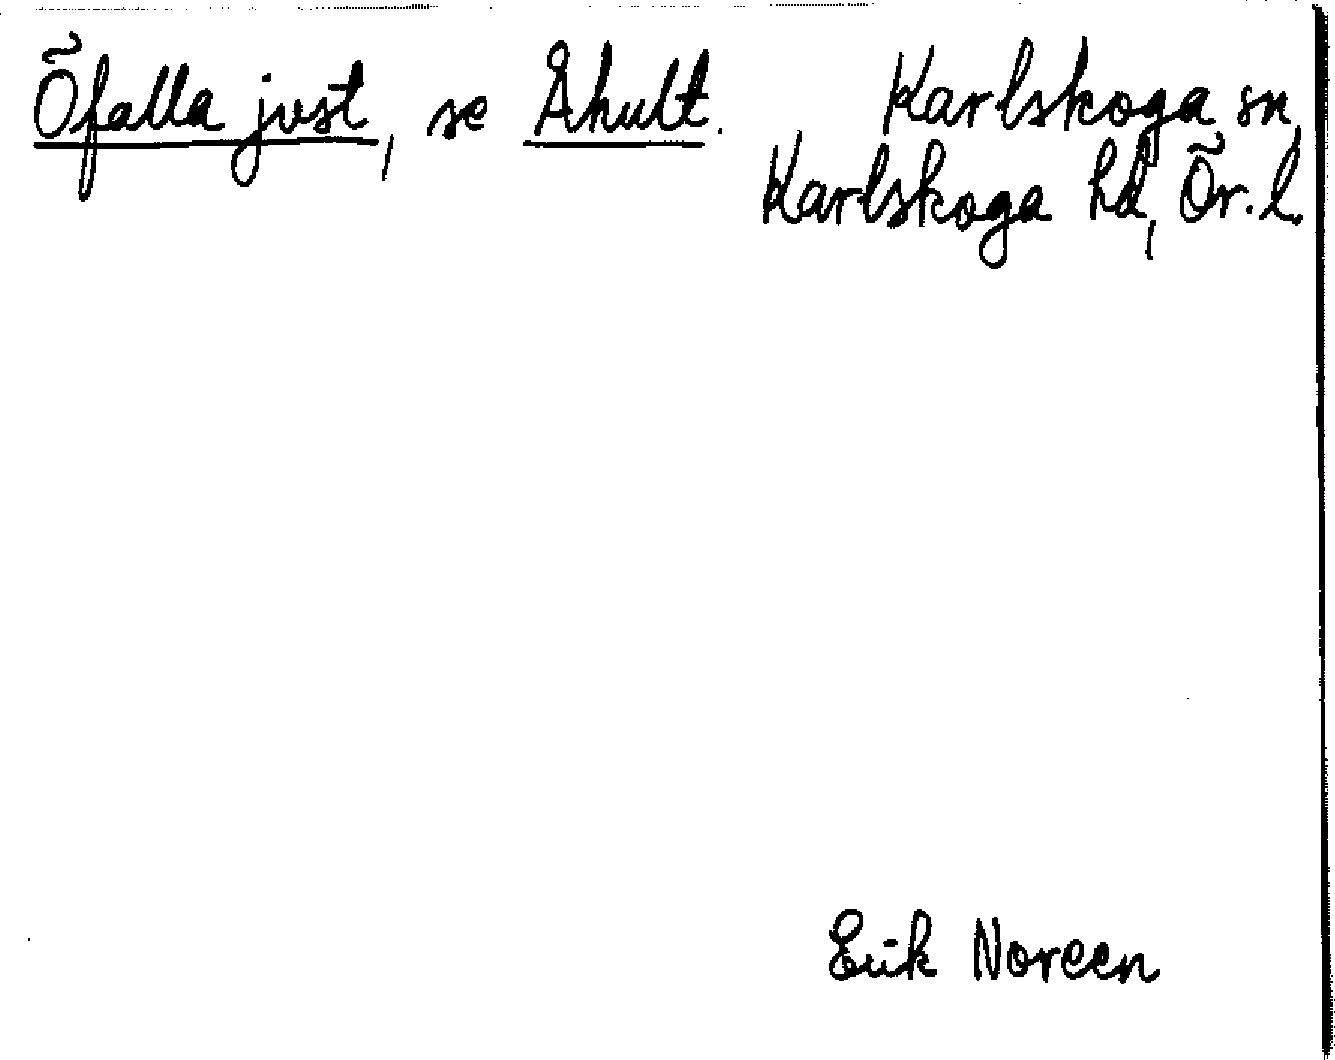 Öfalla just, se Åhult. Karlskoga sn,
Karlskoga hd, Ör. l.
Erik Noreen